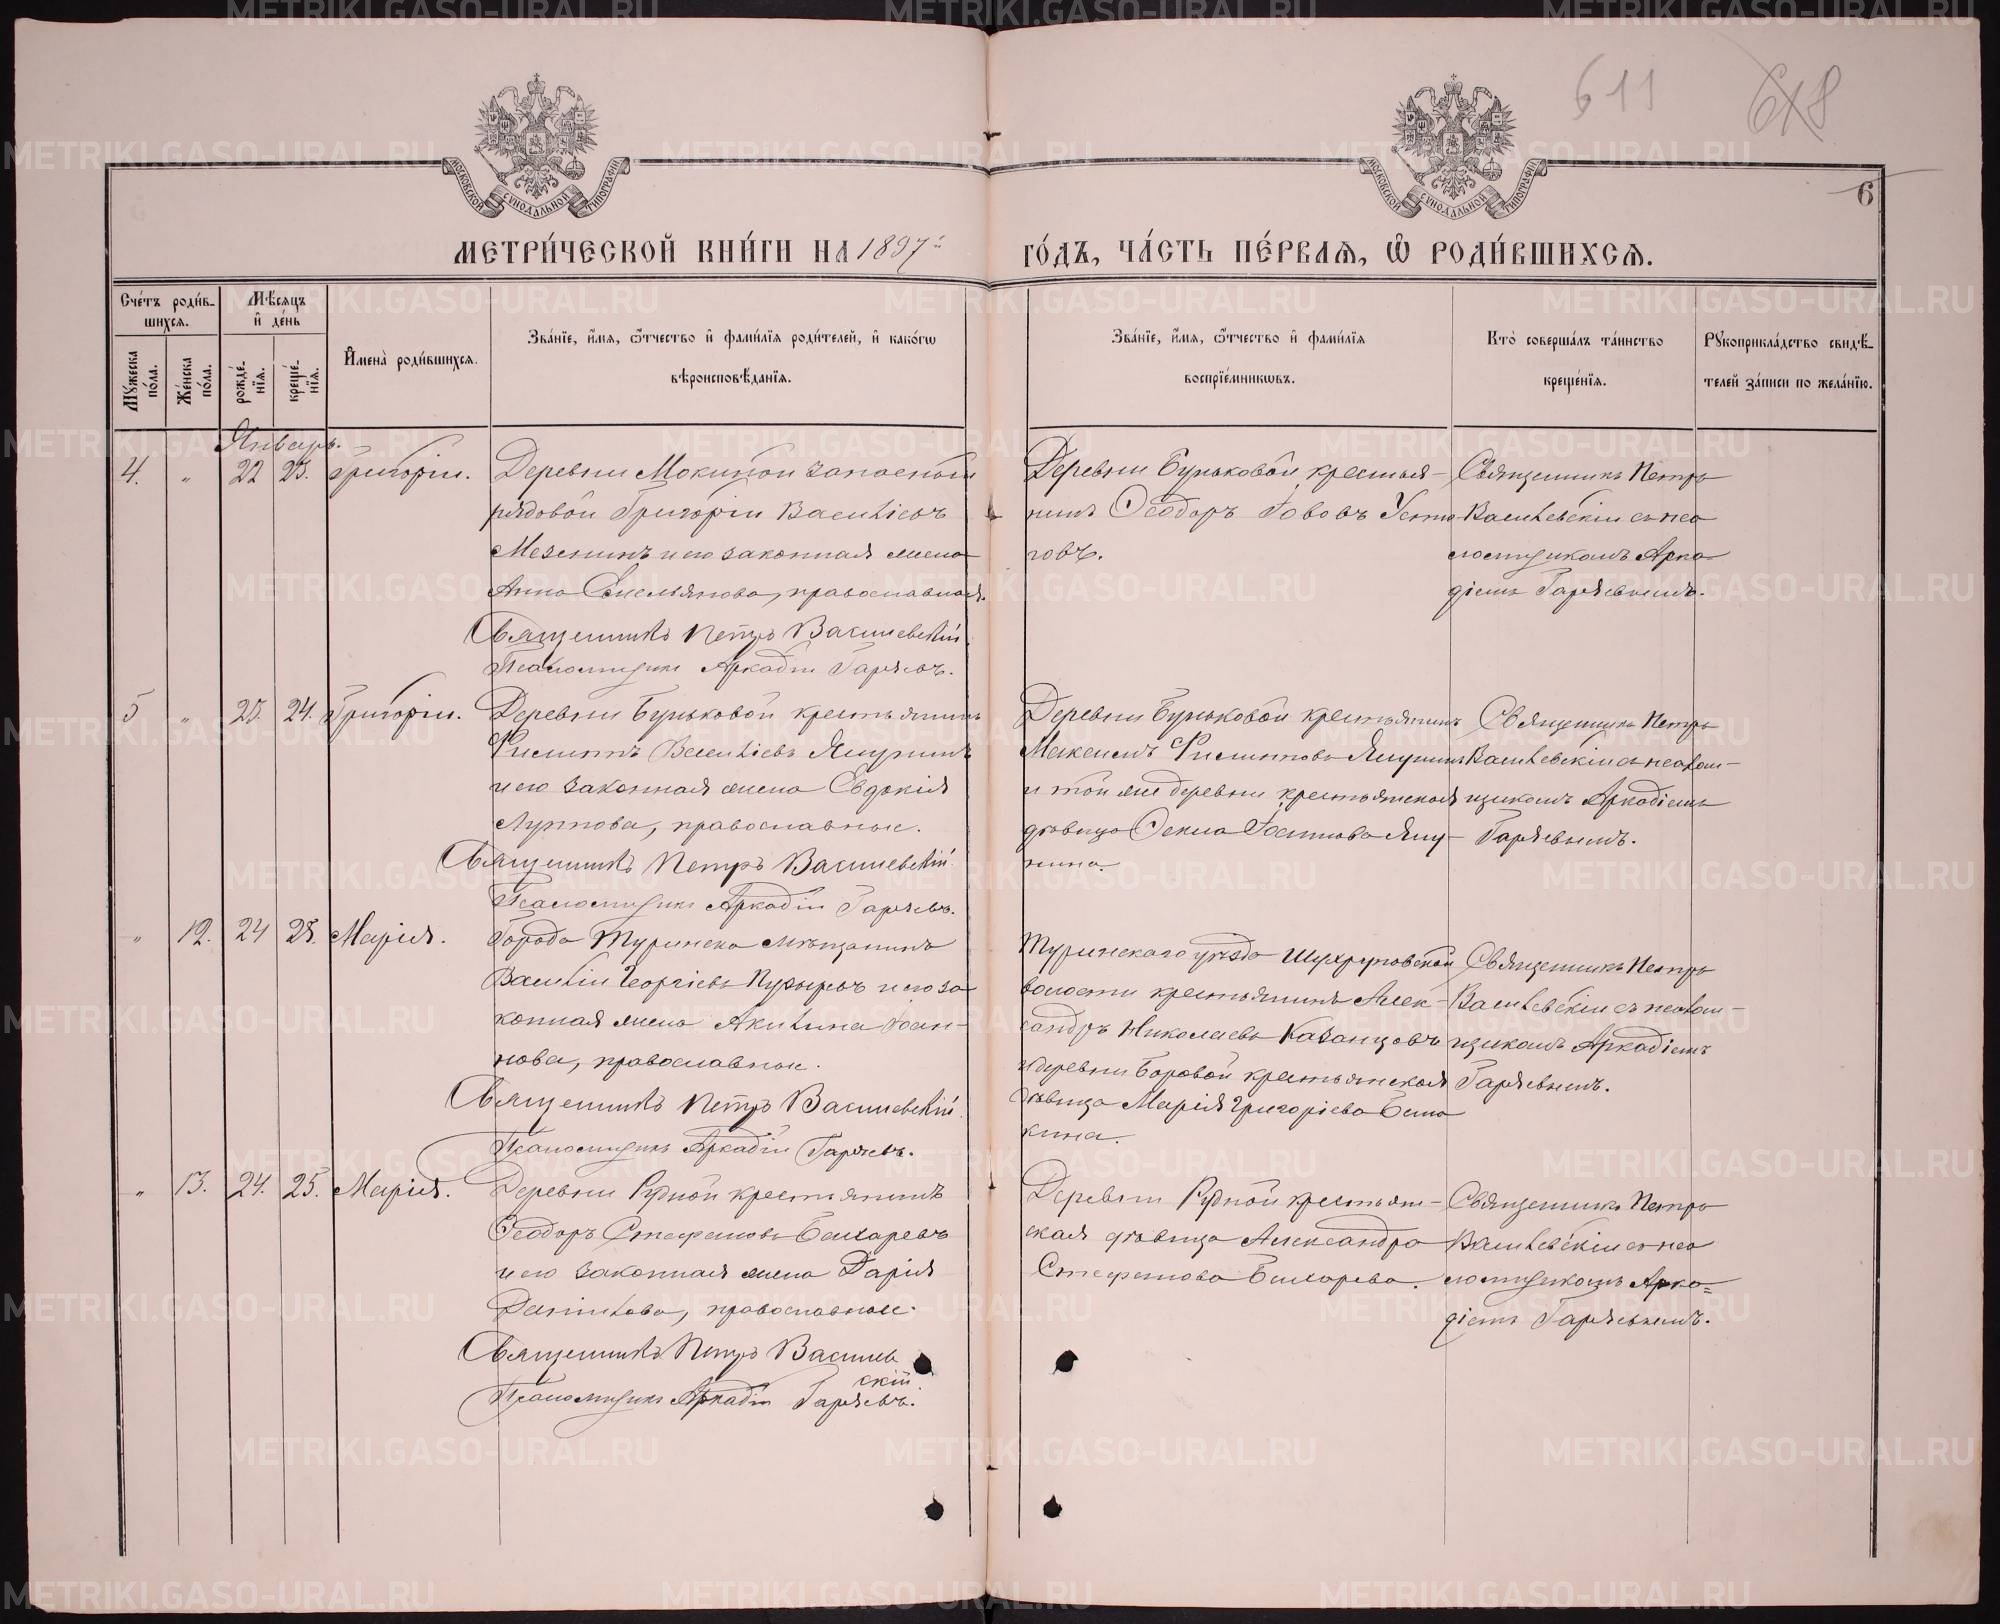 611
618
6
МЕТРИ́ЧЕСКОЙ КНИ́ГИ НА 1897й
ГО́ДЪ, ЧА́СТЬ ПЕ́РВАѦ, Ѡ҆ РОДИ́ВШИХСѦ.
Сче́тъ роди́в-
шихсѧ.
Мѣ́сѧцъ
и҆ де́нь
Мꙋжеска по́ла.
Же́нска по́ла.
рожде́-
нїѧ.
креще́-
нїѧ.
И҆мена̀ роди́вшихсѧ.
Зва́нїе, и҆́мѧ, ѻ҆́тчество и҆ фами́лїѧ роди́телей, и҆ како́гѡ
вѣроисповѣ́данїѧ.
Зва́нїе, и҆́мѧ, ѻ҆́тчество и҆ фами́лїѧ
воспрїе́мникѡвъ.
Кто̀ соверша́лъ та́инство
креще́нїѧ.
Рꙋкоприкла́дство свидѣ́-
телей за́писи по жела́нїю.
Январь.
4. " 22 23. Григорій.
Деревни Мокиной запасный
рядовой Григорій Васильевъ
Мезенинъ и его законная жена
Анна Емельянова, православная.
Священникъ Петръ Василевскій
Псаломщикъ Аркадій Гаряевъ.
Деревни Буньковой крестья-
нинъ Ѳеодоръ Іововъ Усто-
говъ.
Священникъ Петръ
Васильевскій съ пса
ломщикомъ Арка
діемъ Гаряевымъ.
5 " 23. 24. Григорій.
Деревни Буньковой крестьянинъ
Филиппъ Васильевъ Ячунинъ
и его законная жена Евдокія
Луппова, православные.
Священникъ Петръ Василевскій
Псаломщикъ Аркадій Гаряевъ.
Деревни Буньковой крестьянинъ
Максимъ Филипповъ Ячунинъ
и той же деревни крестьянская
дѣвица Ѳекла Іосипова Ячу-
нина.
Священникъ Петръ
Васильевскій съ псалом-
щикомъ Аркадіемъ
Гаряевымъ.
" 12. 24 25. Марія.
Города Туринска мѣщанинъ
Василій Георгіевъ Пузыревъ и его за
конная жена Акилина Іоан-
нова, православные.
Священникъ Петръ Василевскій
Псаломщикъ Аркадій Гаряевъ.
Туринскаго уѣзда Шухруповской
волости крестьянинъ Алек-
сандръ Николаевъ Казанцовъ
и деревни Боровой крестьянская
дѣвица Марія Григоріева
кина.
Священникъ Петръ
Васильевскій съ псалом-
щикомъ Аркадіемъ
Гаряевымъ.
" 13. 24. 25. Марія.
Деревни Рудной крестьянинъ
Ѳеодоръ Стефановъ Бахаревъ
и его законная жена Дарія
Данілова, православные.
Священникъ Петръ Василев
скій
Псаломщикъ Аркадій Гаряевъ.
Деревни Рудной крестьян-
ская дѣвица Александра
Стефанова Бахарева.
Священникъ Петръ
Васильевскій съ пса
ломщикомъ Арка=
діемъ Гаряевымъ.